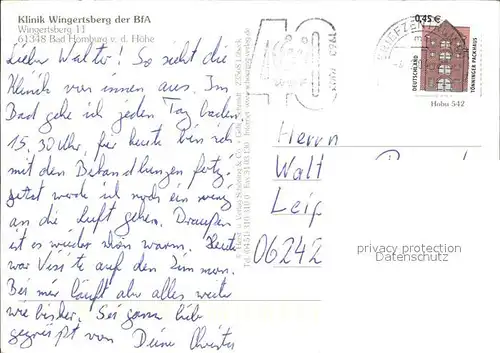 Klinik Wingertsberg der BfA
Wingertsberg 11
61348 Bad Homburg v. d. Höhe
Lieber Walter! So sieht die
Klinik von innen aus. Im
Bad gehe ich jeden Tag baden.
15.30 Uhr, für heute bin ich
mit den Behandlungen fertig.
Jetzt werde ich noch ein wenig
an die Luft gehen. Draußen
ist es wieder schön warm. Heute
war Visite auf den Zimmern.
Bei mir läuft aber alles weiter
wie bisher. Sei ganz lieb
gegrüßt von Deine Christa
BRIEFZEN
0,45 €
DEUTSCHLAND
TÖNNINGER PACKHAUS
Hobu 542
Herrn
Walt
Leip
06242
privacy protection
Datenschutz